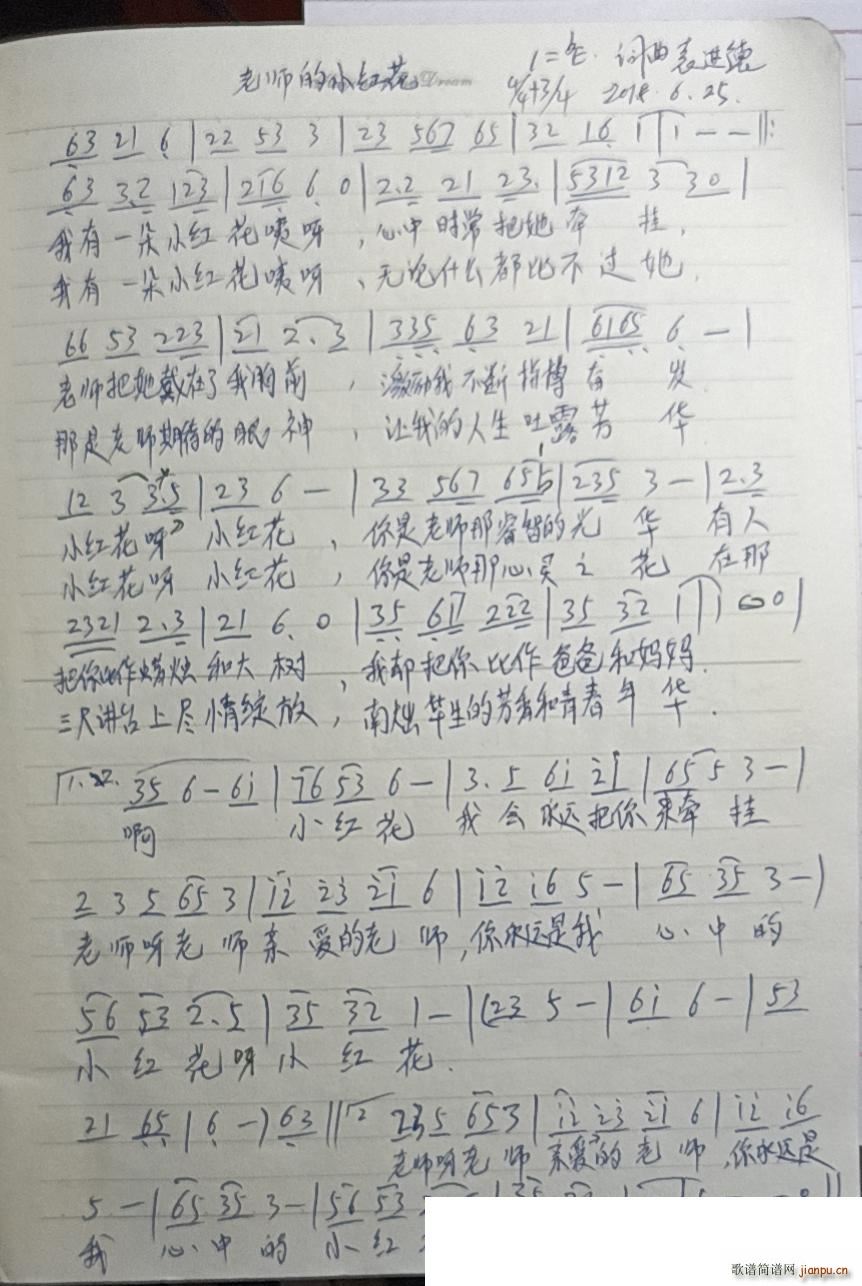 老师的小红花 Dream
1=E 词曲袁进德
4/4+3/4 2018.6.25.
63 21 6 | 22 53 3 | 23 567 65 | 32 16 1 | 1 - - ‖:
63 3.2 123 | 216 6 0 | 2.2 21 23. | 5312 3 30 |
我有一朵小红花咦呀,心中时常把她牵挂,
我有一朵小红花咦呀、无论什么都比不过她.
66 53 223 | 21 2.3 | 335 63 21 | 6165 6 - |
老师把她戴在了我胸前,激励我不断拍搏奋发.
那是老师期待的眼神,让我的人生吐露芳华
12 3 3.5 | 23 6 - | 33 567 655 | 235 3 - | 2.3
小红花呀 小红花,你是老师那睿智的光华 有人
小红花呀 小红花,你是老师那心灵之花 在那
2321 2.3 | 21 6. 0 | 35 61 222 | 35 32 1 | 1 0 0 |
把你比作蜡烛和大树,我却把你比作爸爸和妈妈.
三尺讲台上尽情绽放,学生的芳香和青春年华.
1.2. 35 6 - 6i | i6 53 6 - | 3. 5 6i 2i | 65 5 3 - |
啊 小红花 我会永远把你来牵挂
2 3 5 65 3 | i2 i3 2i 6 | i2 i6 5 - | 65 35 3 - |
老师呀老师亲爱的老师,你永远是我心中的
56 53 2.5 | 35 32 1 - | (23 5 - | 6i 6 - | 53
小红花呀小红花.
21 65 | 6 - ) 63 ‖ 2 23 5 653 | i2 23 2i 6 | i2 i6
老师呀老师亲爱的老师,你永远是
5 - | 65 35 3 - | 56 53
我心中的小红
歌谱简谱网 jianpu.cn